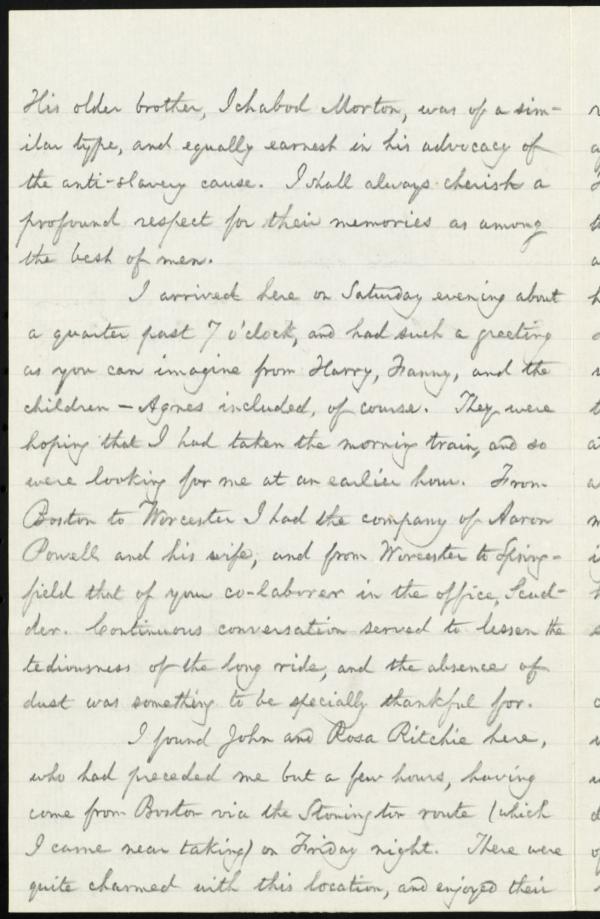 His older brother, Ichabod Morton, was of a sim-
ilar type, and equally earnest in his advocacy of
the anti-slavery cause. I shall always cherish a
profound respect for their memories as among
the best of men.
I arrived here on Saturday evening about
a quarter past 7 o'clock, and had such a greeting
as you can imagine from Harry, Fanny, and the
children — Agnes included, of course. They were
hoping that I had taken the morning train, and so
were looking for me at an earlier hour. From
Boston to Worcester I had the company of Aaron
Powell and his wife, and from Worcester to Spring-
field that of your co-laborer in the office, Scud-
der. Continuous conversation served to lessen the
tediousness of the long ride, and the absence of
dust was something to be specially thankful for.
I found John and Rosa Ritchie here,
who had preceded me but a few hours, having
come from Boston via the Stonington route (which
I came near taking) on Friday night. There were
quite charmed with this location, and enjoyed their